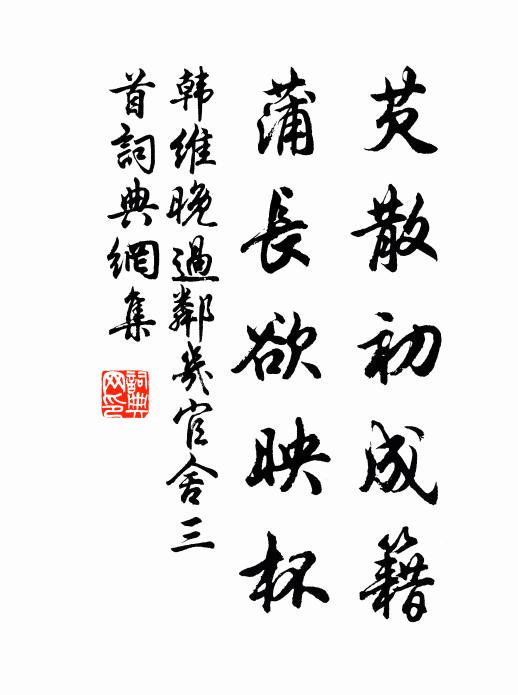 芡散初成籍
蒲長欲映杯
韩維晚過鄰幾官舍三
首詞典網集
詞典网印